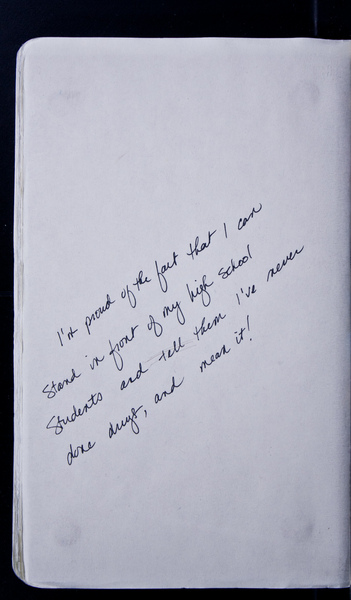 I'm proud of the fact that I can
stand in front of my high school
students and tell them I've never
done drugs, and mean it!